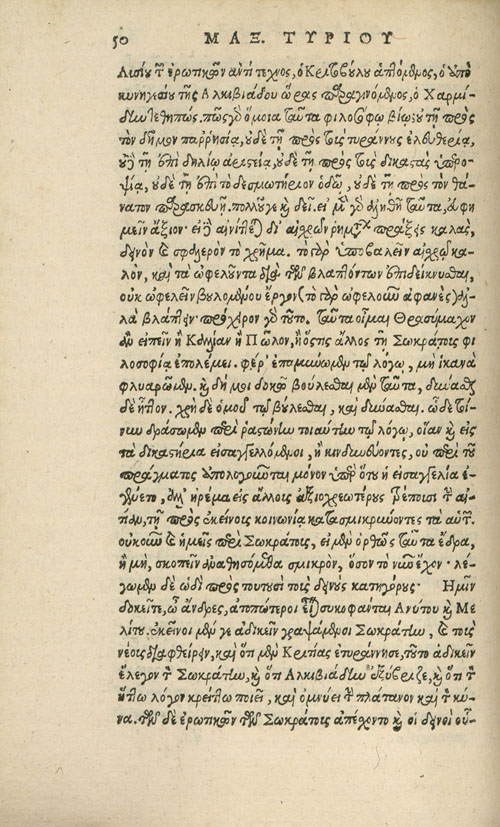 50 ΜΑΞ. ΤΥΡΙΟΥ
Λυσίου τῶν ἐρωτικῶν ἀντίτεχνος, ὁ Κριτοβούλου ἁπτόμενος, ὁ ὑπὸ
κυνηγεσίου τῆς Ἀλκιβιάδου ὥρας παραγινόμενος, ὁ Χαρμί-
δην τεθηπώς. πῶς γὸ ὅμοια ταῦτα φιλοσόφῳ βίῳ; οὐ τῇ πρὸς
τὸν δῆμον παρρησίᾳ, οὐδὲ τῇ πρὸς τοὺς τυράννους ἐλευθερίᾳ,
οὐδὲ τῇ ἐπὶ δηλίῳ ἀριστείᾳ, οὐδὲ τῇ πρὸς τοὺς δικαστὰς ὑπερο-
ψίᾳ, οὐδὲ τῇ ἐπὶ τὸ δεσμωτήριον ὁδῷ, οὐδὲ τῇ πρὸς τὸν θά-
νατον παρασκευῇ. πολλοῦ γε καὶ δεῖ. εἰ μὲν γὸ ἀληθῆ ταῦτα, εὐφη
μεῖν ἄξιον· εἰ δὲ αἰνίττεται δι' αἰσχρῶν ῥημάτων πράξεις καλὰς,
δεινὸν καὶ σφαλερὸν τὸ χρῆμα. τὸ γὰρ ὑποβαλεῖν αἰσχρῷ κα-
λὸν, καὶ τὰ ὠφελοῦντα διὰ τῶν βλαπτόντων ἐπιδείκνυσθαι,
οὐκ ὠφελεῖν βουλομένου ἔργον (τὸ γὰρ ὠφελοῦν ἀφανὲς) ἀλ-
λὰ βλάπτειν· πρόχειρον γὸ τοῦτο. ταῦτα οἶμαι Θρασύμαχον
ἂν εἰπεῖν ἢ Κριτίαν ἢ Πῶλον, ἢ ὅστις ἄλλος τῇ Σωκράτους φι
λοσοφίᾳ ἐπολέμει. φέρ' ἐπαμύνωμεν τῷ λόγῳ, μὴ ἱκανὰ
φλυαρῶμεν. καὶ δή μοι δοκῶ βούλεσθαι μὲν ταῦτα, δύνασθαι
δὲ ἧττον. χρὴ δὲ ὁμοῦ τῷ βούλεσθαι, καὶ δύνασθαι. ὧδε τοί-
νυν δράσωμεν περὶ ῥᾳστώνην τοιαύτην τῷ λόγῳ, οἵαν καὶ εἰς
τὰ δικαστήρια εἰσαγγελλόμενοι, ἢ κινδυνεύοντες, οὐ περὶ τοῦ
πράγματος ὑπολογιοῦνται μόνον ὑπὲρ ὅτου ἡ εἰσαγγελία ἐ-
γένετο, ἀλλ' ἠρέμα εἰς ἄλλους ἀξιοχρεωτέρους τρέπουσι τὴν αἰ-
τίαν, τῇ πρὸς ἐκείνους κοινωνίᾳ κατασμικρύνοντες τὰ αὑτῶν.
οὐκοῦν καὶ ἡμεῖς περὶ Σωκράτους, εἰ μὲν ὀρθῶς ταῦτα ἔδρα,
ἢ μὴ, σκοπεῖν ἀναθησόμεθα σμικρὸν, ὅσον τὸ νῦν ἔχον· λέ-
γωμεν δὲ ὡδὶ πρὸς τουτουσὶ τοὺς δεινοὺς κατηγόρους· Ἡμῖν
δοκεῖτε, ὦ ἄνδρες, ἀτοπώτεροι εἶναι συκοφάνται Ἀνύτου καὶ Με
λίτου. ἐκεῖνοι μέν γε ἀδικεῖν γραψάμενοι Σωκράτην, καὶ τοὺς
νέους διαφθείρειν, καὶ ὅτι μὲν Κριτίας ἐτυράννησε, τοῦτο ἀδικεῖν
ἔλεγον τὸν Σωκράτην, καὶ ὅτι Ἀλκιβιάδην ἐξύβριζε, καὶ ὅτι τὸν
ἥττω λόγον κρείττω ποιεῖ, καὶ ὀμνύει τὴν πλάτανον καὶ τὸν κύ-
να. τῶν δὲ ἐρωτικῶν τῶν Σωκράτους ἀπέχοντο καὶ οἱ δεινοὶ οὗ-